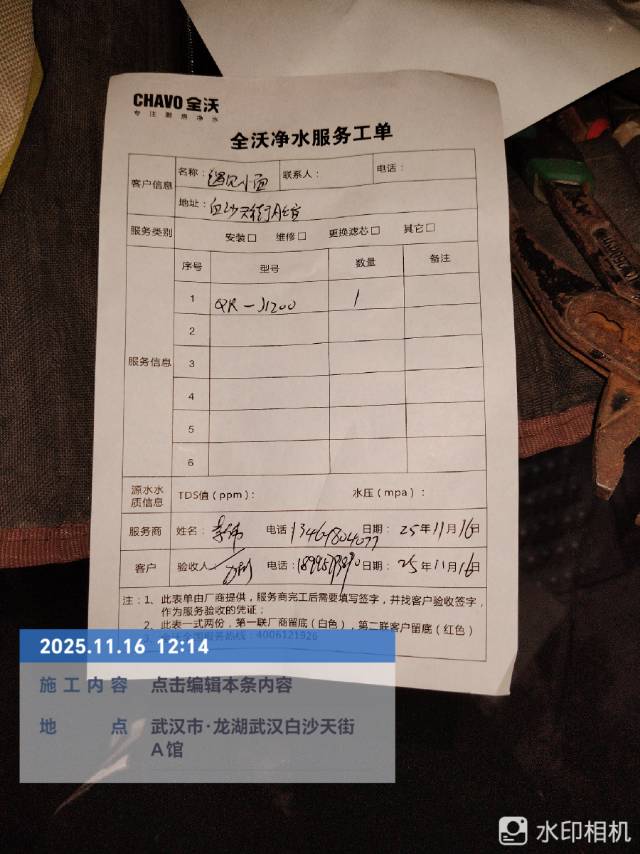 CHAVO 全沃
专注厨房净水
全沃净水服务工单
客户信息 名称：遇见小面 联系人： 电话：
地址：白沙天街A馆
服务类别 安装□ 维修□ 更换滤芯□ 其它□
服务信息 序号 型号 数量 备注
1 QR-J1200 1
2
3
4
5
6
源水水质信息 TDS值（ppm）： 水压（mpa）：
服务商 姓名：李伟 电话 日期：25年11月16日
客户 验收人 电话： 日期：25年11月16日
注：1、此表单由厂商提供，服务商完工后需要填写签字，并找客户验收签字，
作为服务验收的凭证；
2、此表一式两份，第一联厂商留底（白色），第二联客户留底（红色）
3、全沃全国服务热线：4006121926
2025.11.16 12:14
施工内容 点击编辑本条内容
地点 武汉市·龙湖武汉白沙天街
A馆
水印相机